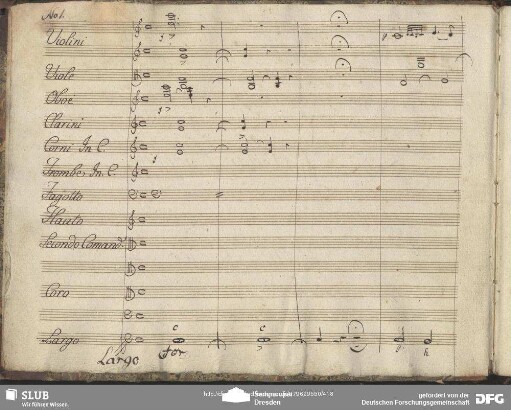 No. 1.
Violini
Viole
Oboe
Clarini
Corni In C.
Trombe, In C.
Fagotto
Flauto
Secondo Comand.
Coro
Largo
Largo
for
SLUB
Wir führen Wissen.
Dresden
gefördert von der
Deutschen Forschungsgemeinschaft
DFG